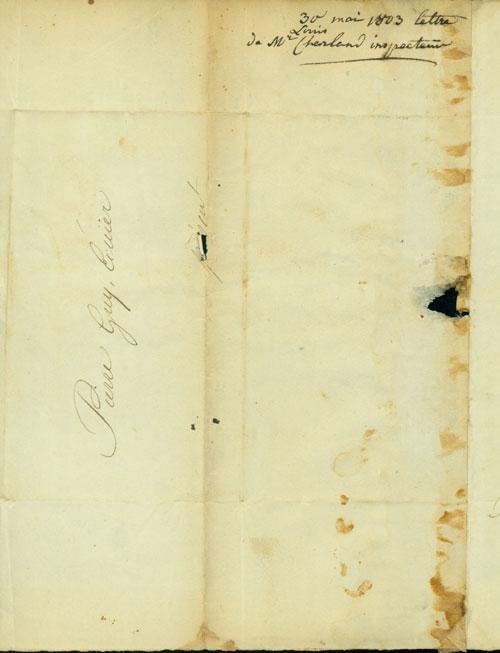 30 mai 1803 lettre
de Mr Louis Charland inspecteur
Pierre Guy, Ecuier
présent